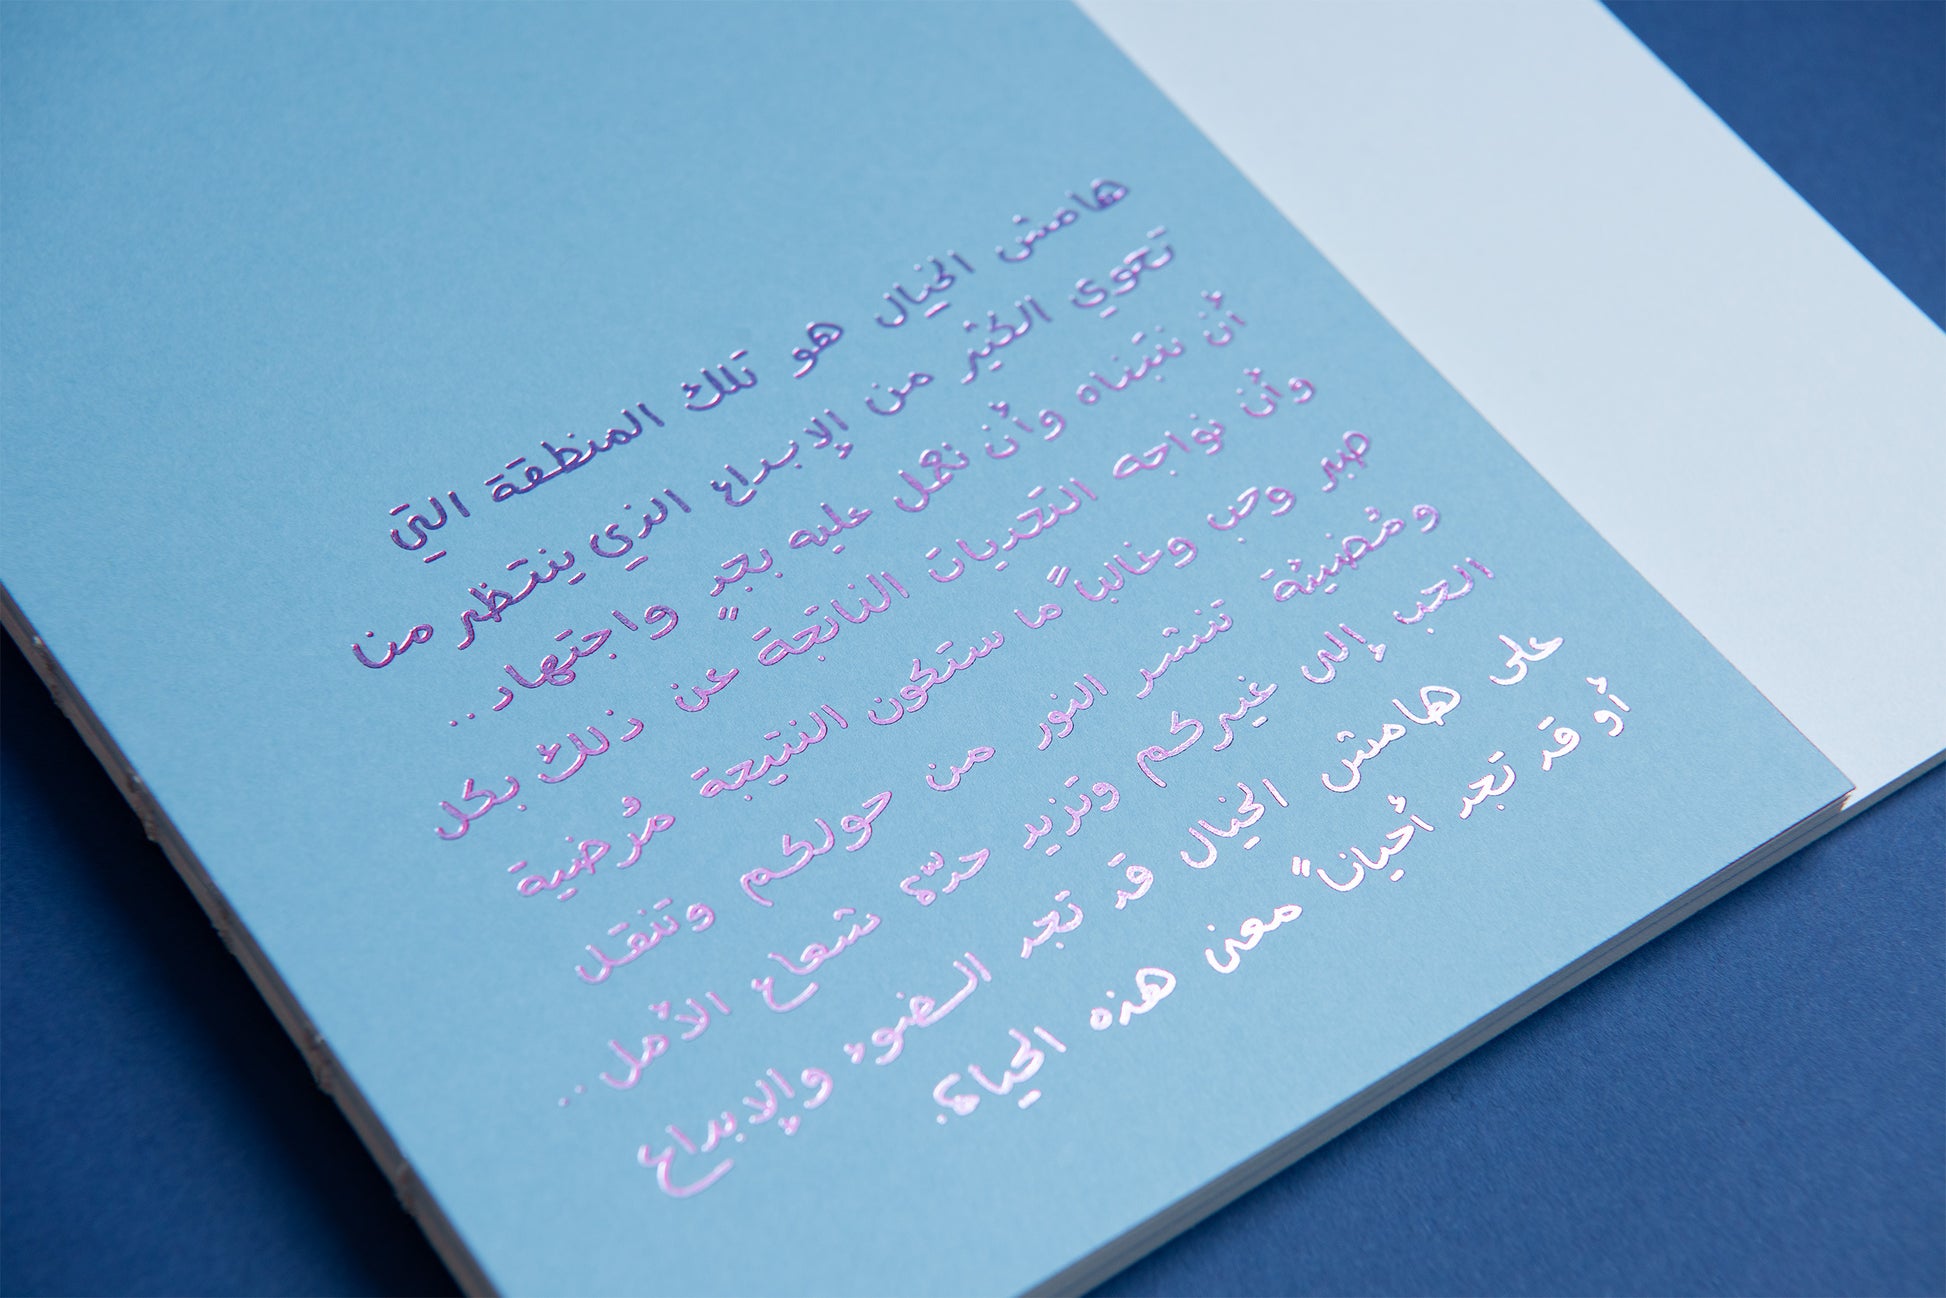 هامش الخيال هو تلك المنطقة التي
تحوي الكثير من الإبداع الذي ينتظر من
أن نتبناه وأن نعمل عليه بجدٍ واجتهاد..
وأن نواجه التحديات الناتجة عن ذلك بكل
صبر وحب وغالباً ما ستكون النتيجة مُرضية
ومُضيئة تنشر النور من حولكم وتنقل
الحب إلى غيركم وتزيد حدّة شعاع الأمل..
على هامش الخيال قد تجد الضوء والإبداع
أو قد تجد أحياناً معنى هذه الحياة.